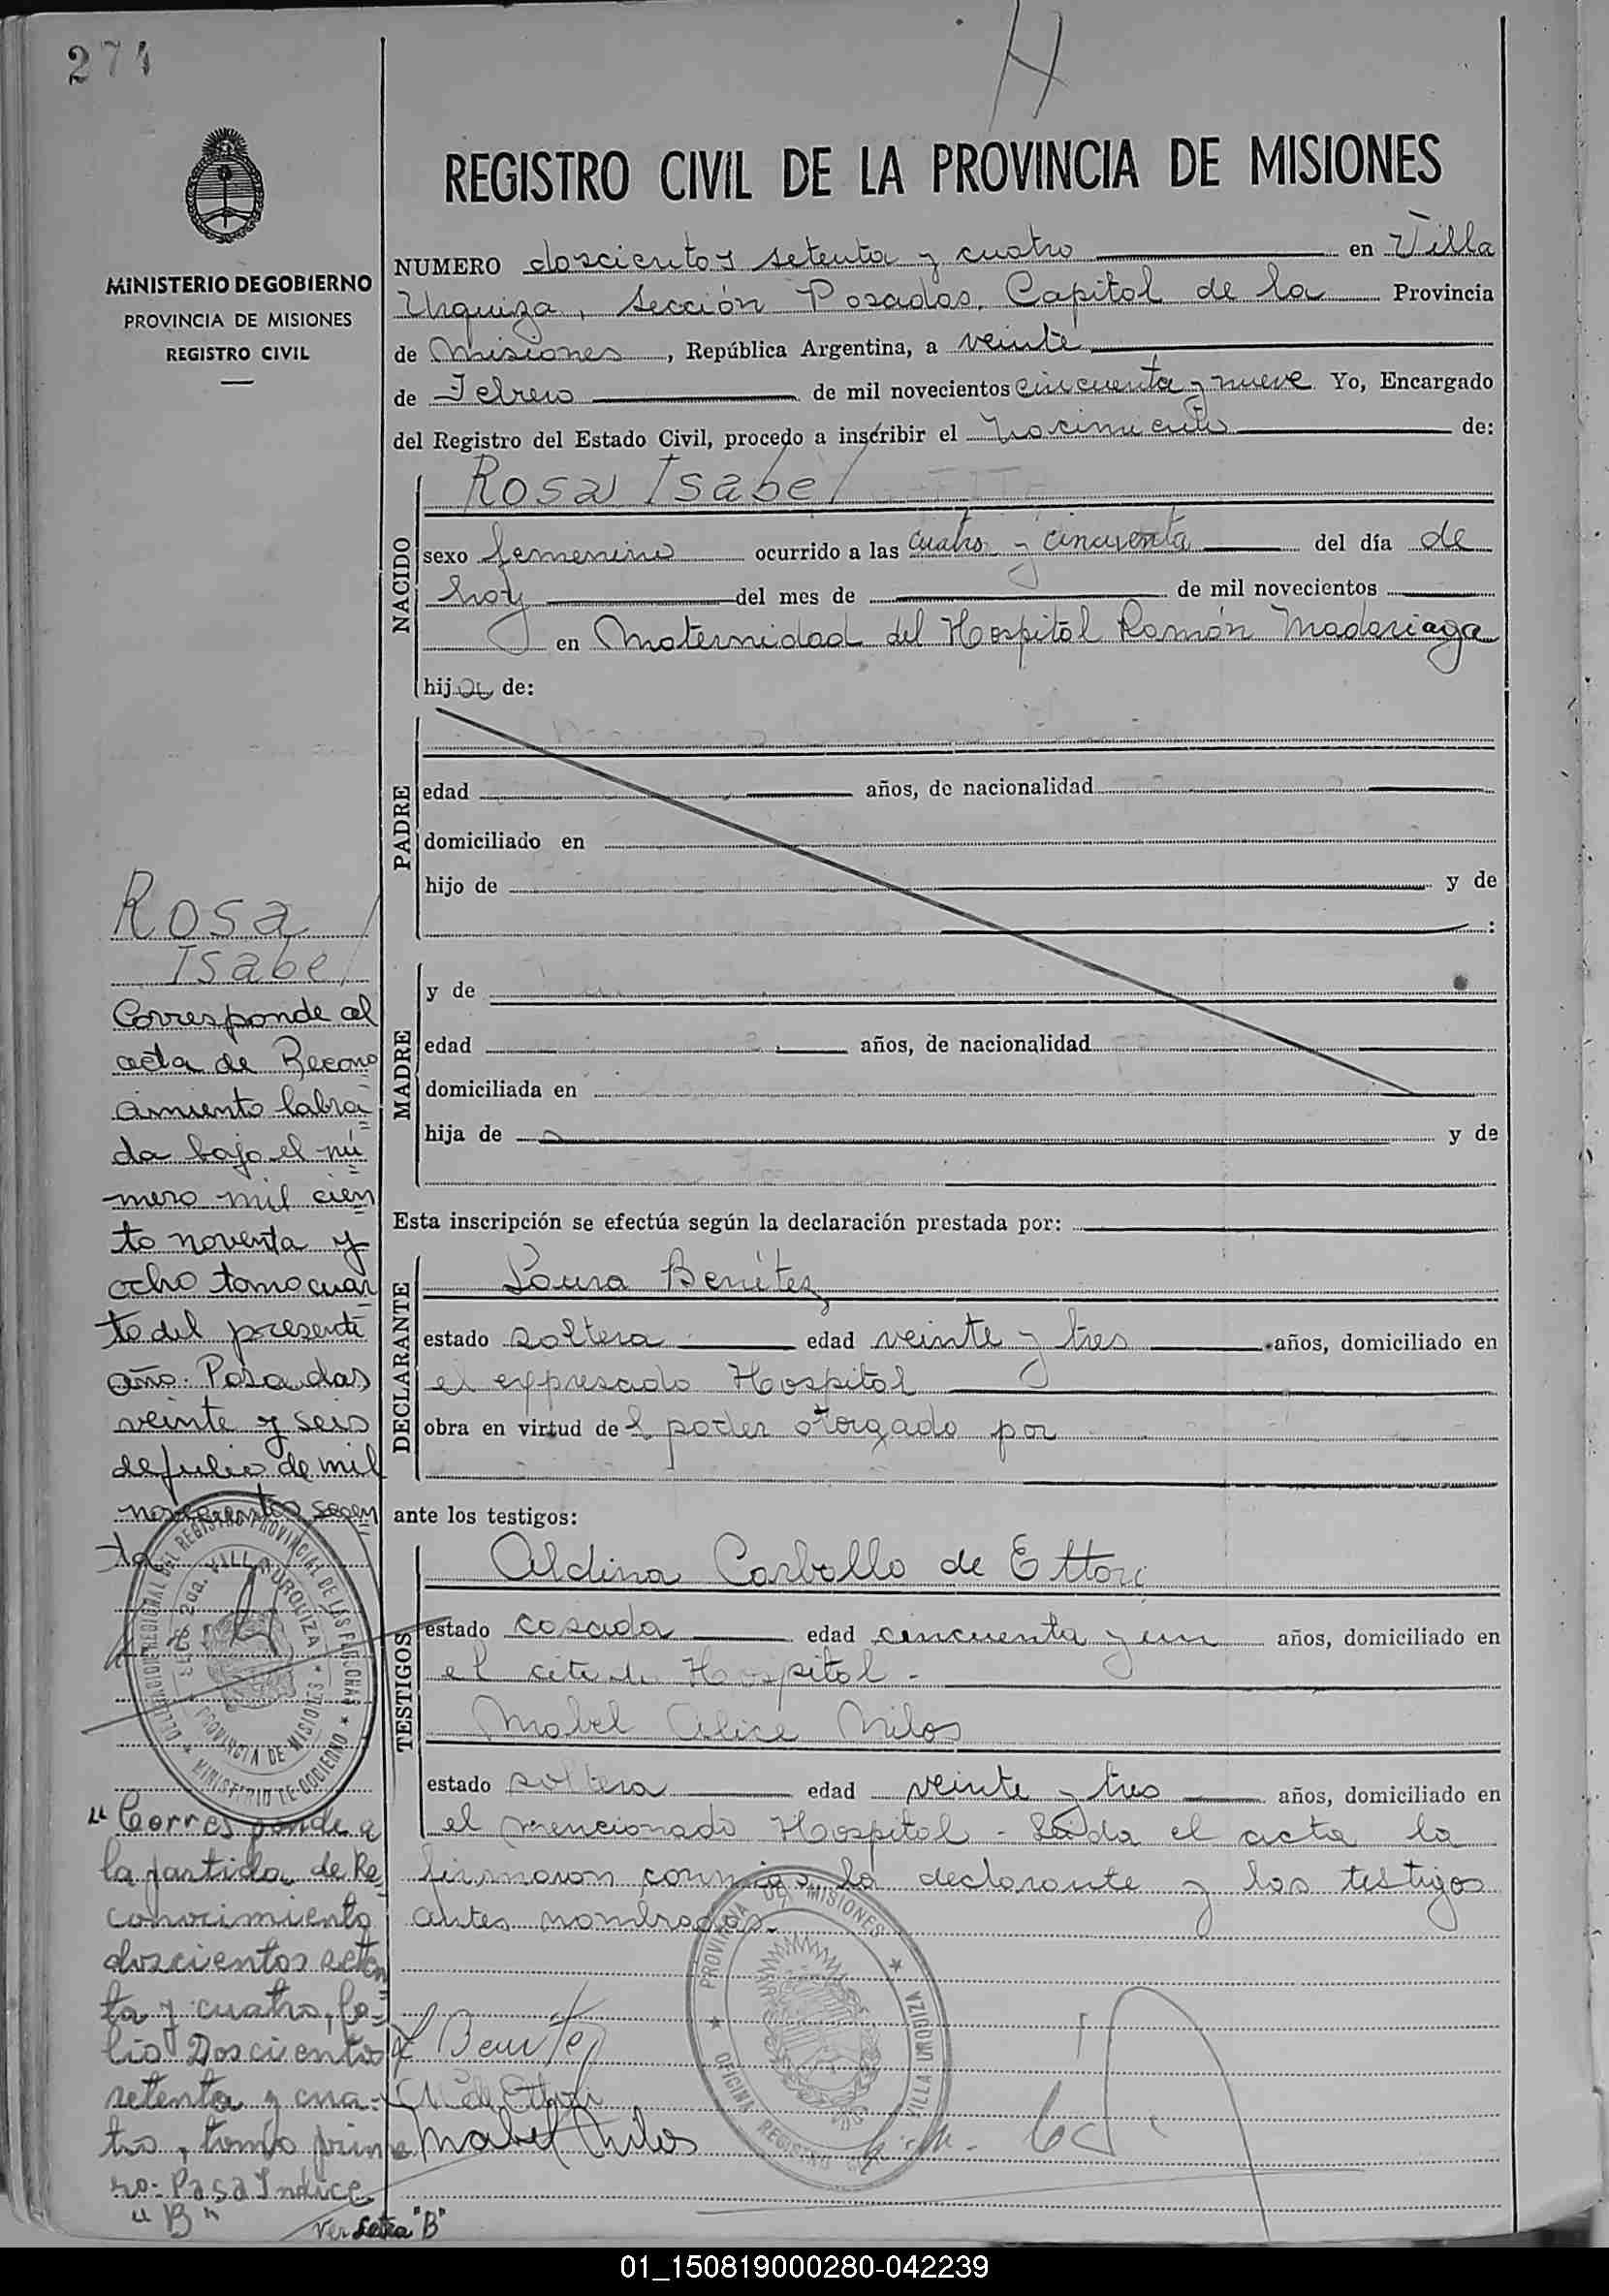 274
H
MINISTERIO DE GOBIERNO
PROVINCIA DE MISIONES
REGISTRO CIVIL
REGISTRO CIVIL DE LA PROVINCIA DE MISIONES
NUMERO doscientos setenta y cuatro en Villa
Urquiza, sección Posadas, Capital de la Provincia
de Misiones, República Argentina, a veinte
de Febrero de mil novecientos cincuenta y nueve Yo, Encargado
del Registro del Estado Civil, procedo a inscribir el nacimiento de:
NACIDO
Rosa Isabel
sexo femenino ocurrido a las cuatro y cincuenta del día de
hoy del mes de de mil novecientos
en Maternidad del Hospital Ramón Madariaga
hija de:
PADRE
edad años, de nacionalidad
domiciliado en
hijo de y de
:
MADRE
y de
edad años, de nacionalidad
domiciliada en
hija de y de
Esta inscripción se efectúa según la declaración prestada por:
DECLARANTE
Laura Benítez
estado soltera edad veinte y tres años, domiciliado en
el expresado Hospital
obra en virtud del poder otorgado por
ante los testigos:
TESTIGOS
Aldina Carballo de Ettori
estado casada edad cincuenta y un años, domiciliado en
el citado Hospital -
Mabel Alice Milos
estado soltera edad veinte y tres años, domiciliado en
el mencionado Hospital - Leída el acta la
firmaron conmigo la declarante y los testigos
antes nombrados.
L Benitez
A C de Ettori
Mabel Milos
PROVINCIA DE MISIONES
OFICINA REGISTRO
VILLA URQUIZA
Rosa
Isabel
Corresponde al
acta de Recono
cimiento labra
da bajo el nú
mero mil cien
to noventa y
ocho tomo cuar
to del presente
año. Posadas
veinte y seis
de julio de mil
novecientos sesen
ta
DELEGACION REGIONAL DEL REGISTRO PROVINCIAL DE LAS PERSONAS
2da. VILLA URQUIZA
PROVINCIA DE MISIONES
MINISTERIO DE GOBIERNO
"Corresponde a
la partida de Re
conocimiento
doscientos seten
ta y cuatro, fo-
lio Doscientos
setenta y cua-
tro, tomo prime
ro- Pasa Indice
"B"
Ver Letra "B"
01_150819000280-042239